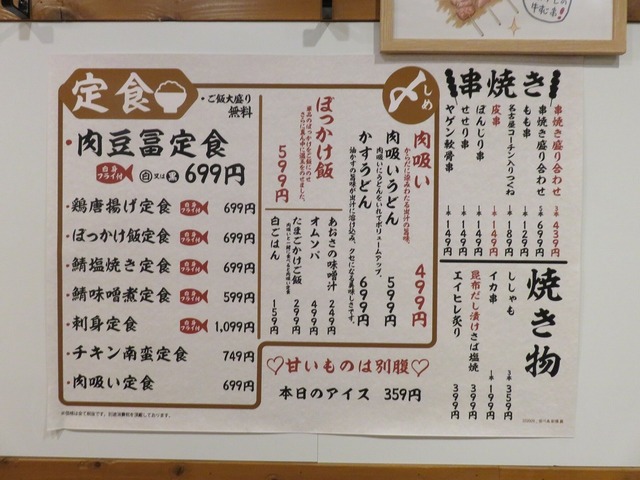 定食
・ご飯大盛り
無料
・肉豆冨定食
白身フライ付 白又は黒 699円
・鶏唐揚げ定食 白身フライ付 699円
・ぼっかけ飯定食 白身フライ付 699円
・鯖塩焼き定食 白身フライ付 699円
・鯖味噌煮定食 白身フライ付 599円
・刺身定食 白身フライ付 1,099円
・チキン南蛮定食 749円
・肉吸い定食 699円
〆しめ
肉吸い
からだに染みわたる出汁の旨味。
499円
肉吸いうどん
肉吸いにうどんをいれてボリュームアップ。
599円
かすうどん
油かすの旨味が出汁に溶け込み、クセになる美味しさです。
699円
ぼっかけ飯
599円
あおさの味噌汁 249円
オムソバ 499円
たまごかけご飯 299円
白ごはん 159円
♡甘いものは別腹♡
本日のアイス 359円
串焼き
串焼き盛り合わせ 3本 439円
串焼き盛り合わせ 5本 699円
もも串 1本 129円
名古屋コーチン入りつくね 1本 189円
皮串 1本 149円
ぼんじり串 1本 149円
せせり串 1本 149円
ヤゲン軟骨串 1本 149円
焼き物
ししゃも 3本 359円
イカ串 1本 199円
昆布だし漬けさば塩焼 399円
エイヒレ炙り 399円